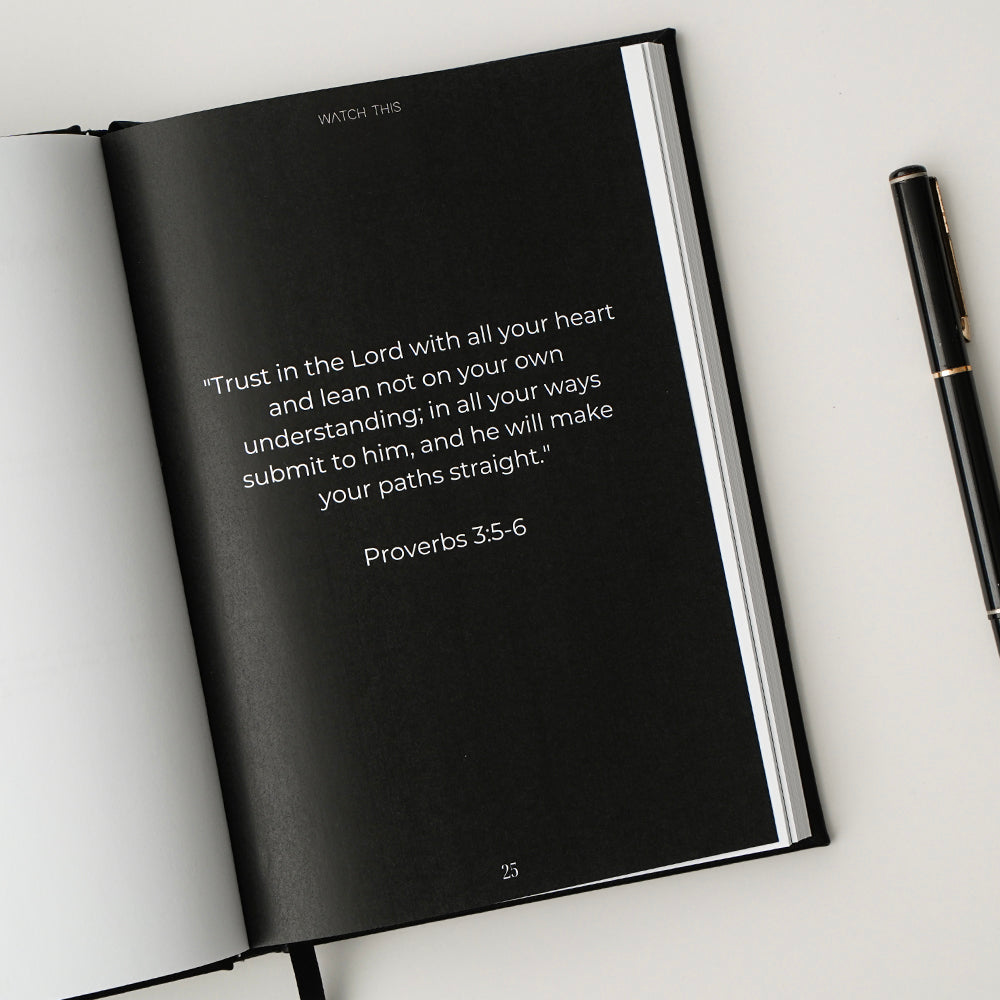 WATCH THIS
"Trust in the Lord with all your heart
and lean not on your own
understanding; in all your ways
submit to him, and he will make
your paths straight."
Proverbs 3:5-6
25